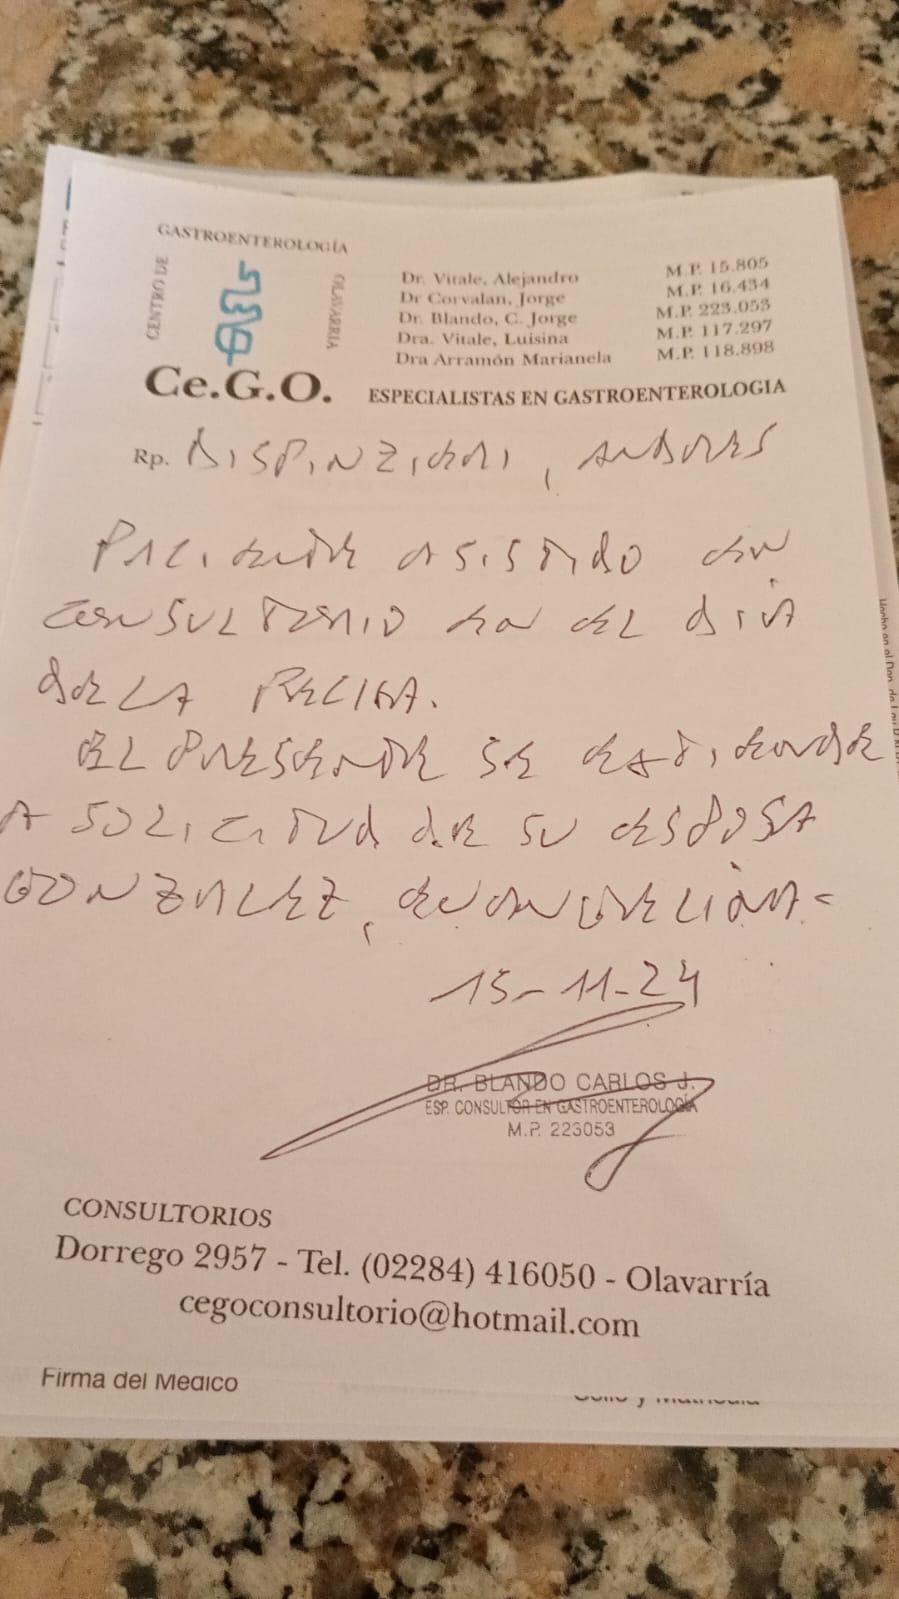 GASTROENTEROLOGÍA
CENTRO DE
OLAVARRIA
Ce.G.O.
Dr. Vitale, Alejandro M.P. 15.805
Dr Corvalan, Jorge M.P. 16.434
Dr. Blando, C. Jorge M.P. 223.053
Dra. Vitale, Luisina M.P. 117.297
Dra Arramón Marianela M.P. 118.898
ESPECIALISTAS EN GASTROENTEROLOGIA
Rp. , ANDRES
PACIENTE ASISTIDO EN
CONSULTORIO EN EL DIA
DE LA FECHA.
EL PRESENTE SE EXTIENDE
A SOLICITUD DE SU ESPOSA
GONZALEZ, EVANGELINA
15-11-24
DR. BLANDO CARLOS J.
ESP. CONSULTOR EN GASTROENTEROLOGÍA
M.P. 223053
CONSULTORIOS
Dorrego 2957 - Tel. (02284) 416050 - Olavarría
cegoconsultorio@hotmail.com
Firma del Medico